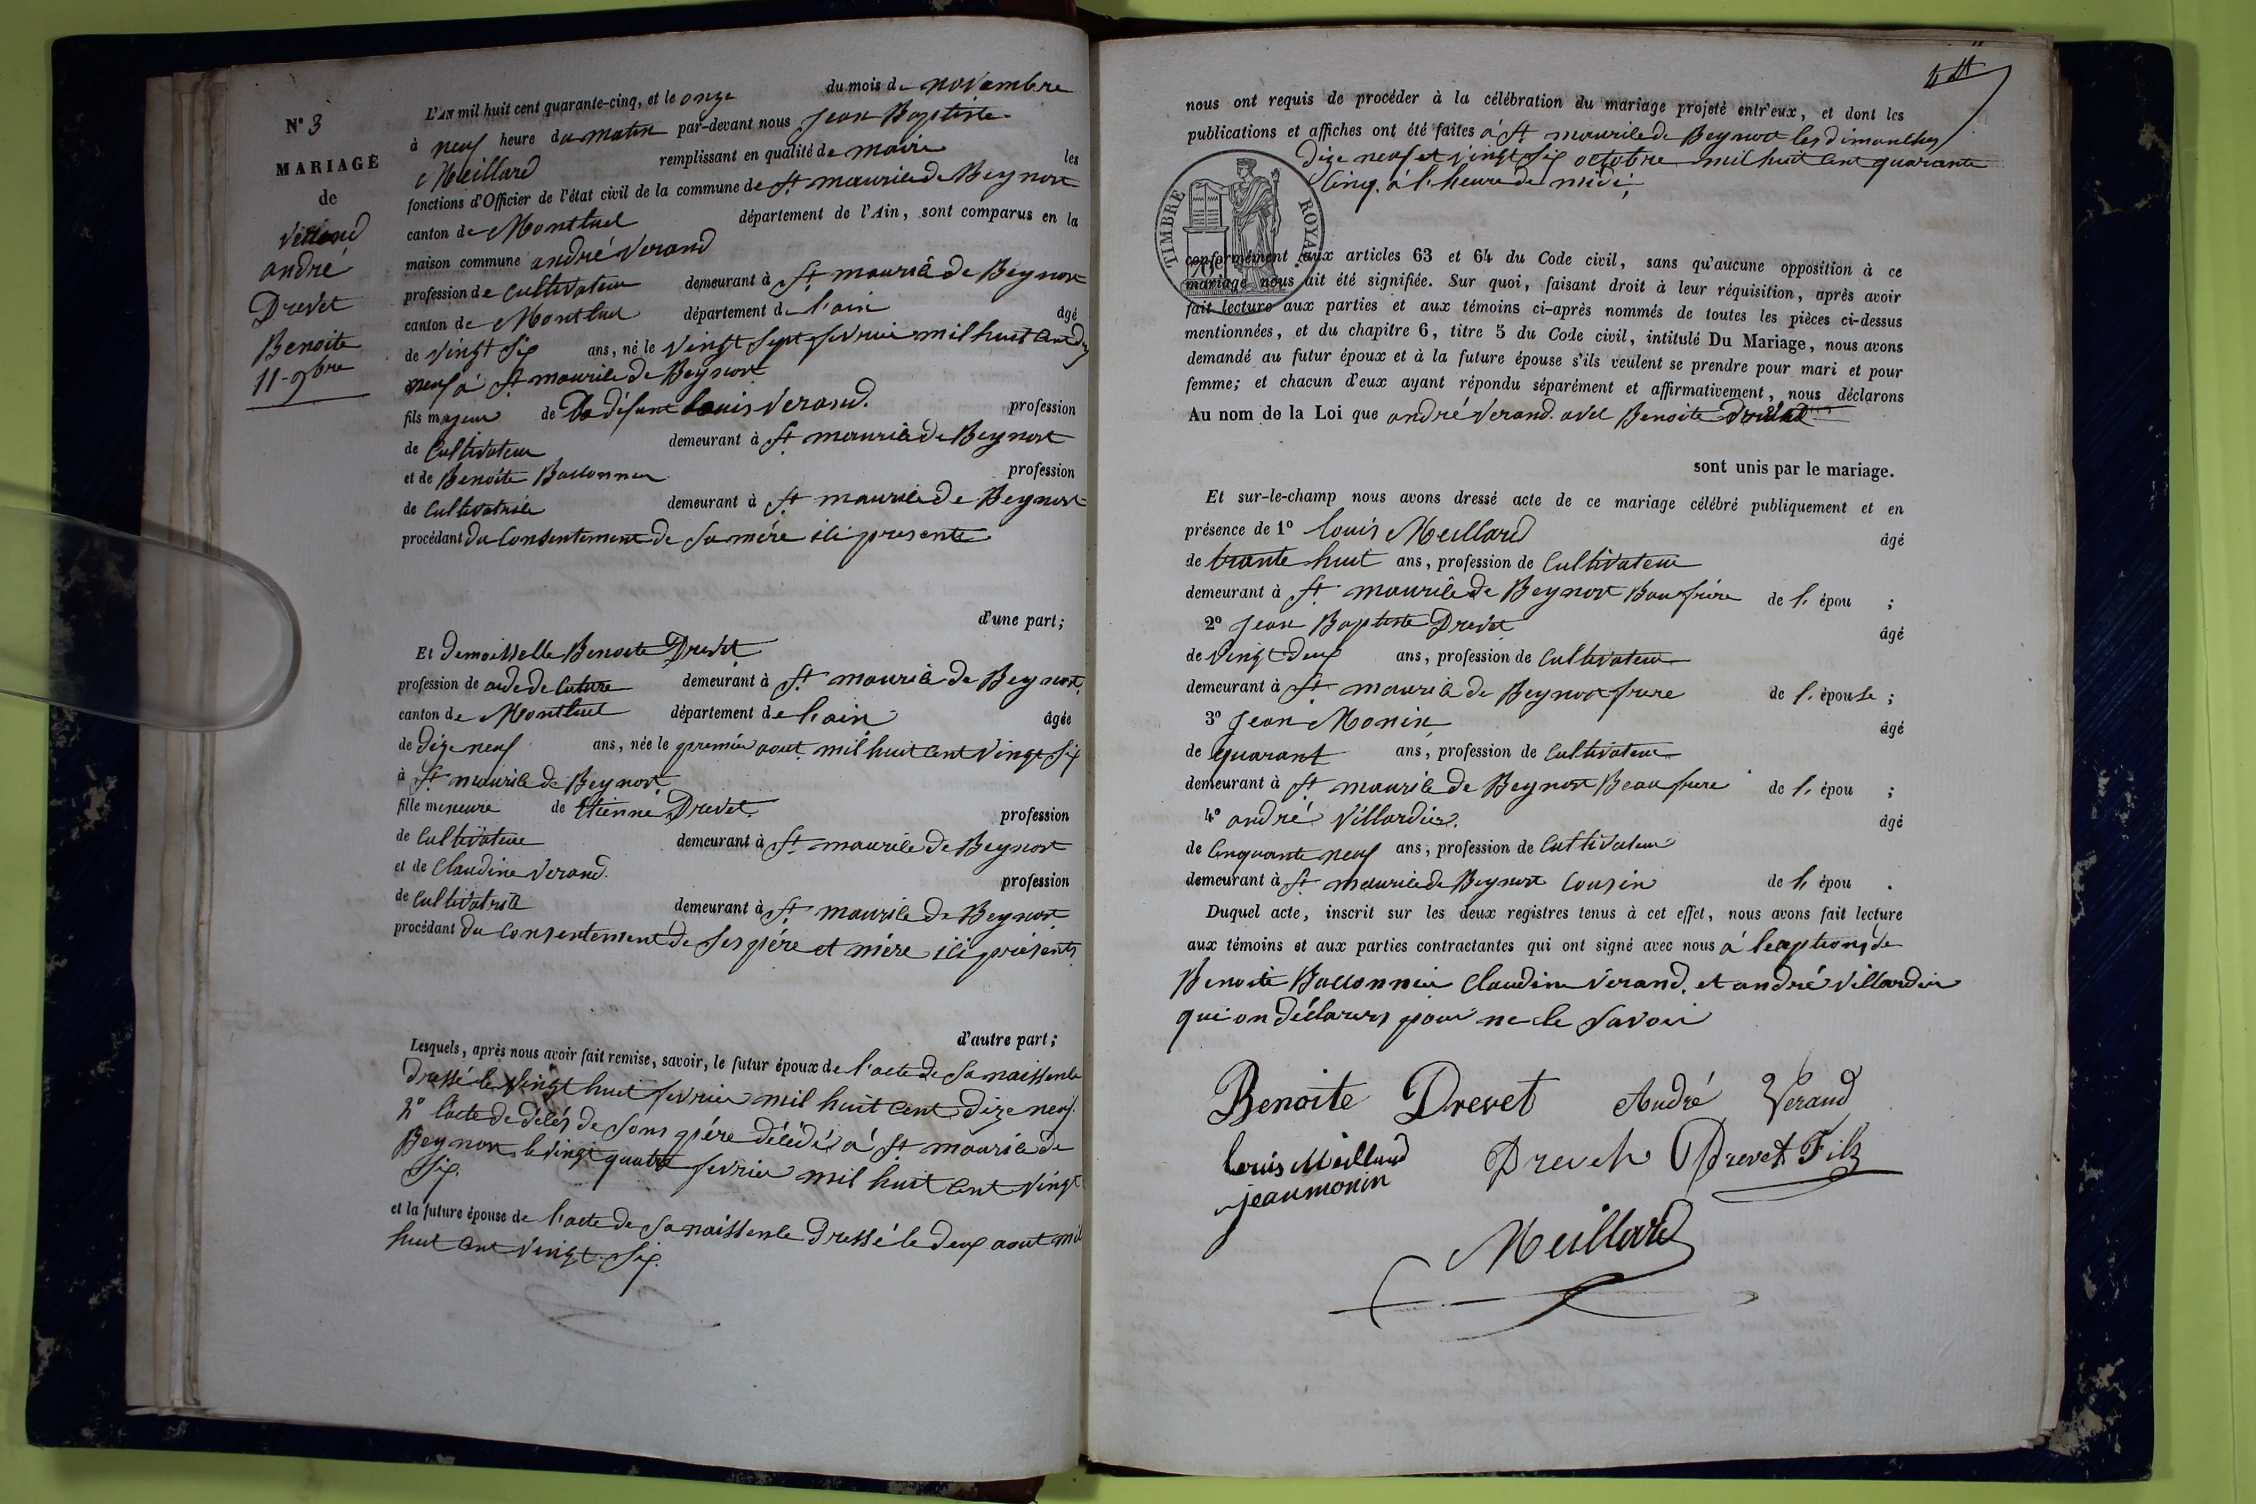 N° 3
MARIAGE
de
Verand
andré
Drevet
Benoite
11 - 9bre
L'AN mil huit cent quarante-cinq, et le onze du mois de novembre
à neuf heure du matin par-devant nous Jean Baptiste
Meillard remplissant en qualité de maire les
fonctions d'Officier de l'état civil de la commune de St maurice de Beynost
canton de Montluel département de l'Ain, sont comparus en la
maison commune andré Verand
profession de Cultivateur demeurant à St maurice de Beynost
canton de Montluel département de l'ain âgé
de vingt six ans, né le vingt sept fevrier mil huit cent dix
neuf à St maurice de Beynost
fils majeur de défunt Louis Vérand. profession
de Cultivateur demeurant à St maurice de Beynost
et de Benoite Bassonnier profession
de Cultivatrice demeurant à St maurice de Beynost
procédant du Consentement de sa mére ici presente
d'une part;
Et demoisselle Benoite Drevet
profession de aide de Cuture demeurant à St maurice de Beynost.
canton de Montluel département de l'ain âgée
de dize neuf ans, née le premier aout mil huit cent vingt six
à St maurice de Beynost
fille meneure de Etienne Drevet. profession
de Cultivateur demeurant à St maurice de Beynost
et de Claudine Verand. profession
de Cultivatrice demeurant à St maurice de Beynost
procédant du Consentement de ses pére et mére ici présents
d'autre part;
Lesquels, après nous avoir fait remise, savoir, le futur époux de l'acte de sa naissence
dressé le vingt huit fevrier mil huit cent dize neuf.
2° l'acte de décés de sons pére décédé à St maurice de
Beynost le vingt quatre fevrier mil huit cent vingt
six.
et la future épouse de l'acte de sa naissence dressé le deux aout mil
huit cent vingt six.
nous ont requis de procéder à la célébration du mariage projeté entr'eux, et dont les
publications et affiches ont été faites à St maurice de Beynost les dimanches
dize neuf et vingt six octobre mil huit cent quarante
Cinq. à l'heure de midi,
TIMBRE ROYAL
conformément aux articles 63 et 64 du Code civil, sans qu'aucune opposition à ce
mariage nous ait été signifiée. Sur quoi, faisant droit à leur réquisition, après avoir
fait lecture aux parties et aux témoins ci-après nommés de toutes les pièces ci-dessus
mentionnées, et du chapitre 6, titre 5 du Code civil, intitulé Du Mariage, nous avons
demandé au futur époux et à la future épouse s'ils veulent se prendre pour mari et pour
femme; et chacun d'eux ayant répondu séparément et affirmativement, nous déclarons
Au nom de la Loi que andré Verand. avec Benoite Drevet
sont unis par le mariage.
Et sur-le-champ nous avons dressé acte de ce mariage célébré publiquement et en
présence de 1° Louis Meillard âgé
de trante huit ans, profession de Cultivateur
demeurant à St maurice de Beynost Baufrére de l' épou ;
2° Jean Baptiste Drevet âgé
de vingt deux ans, profession de Cultivateur
demeurant à St maurice de Beynost frere de l' épouse ;
3° Jean Monin âgé
de quarant ans, profession de Cultivateur
demeurant à St maurice de Beynost Beaufrere de l' épou ;
4° andré Villardier. âgé
de Cinquante neuf ans, profession de Cultivateur
demeurant à St maurice de Beynost Cousin de l' épou .
Duquel acte, inscrit sur les deux registres tenus à cet effet, nous avons fait lecture
aux témoins et aux parties contractantes qui ont signé avec nous à leception de
Benoite Bassonnier Claudine Verand. et andré Villardier
qui on déclarers pour ne le savoir
Benoite Drevet André Verand
Louis Meilland Drevet Drevet Fils
jean monin
Meillard